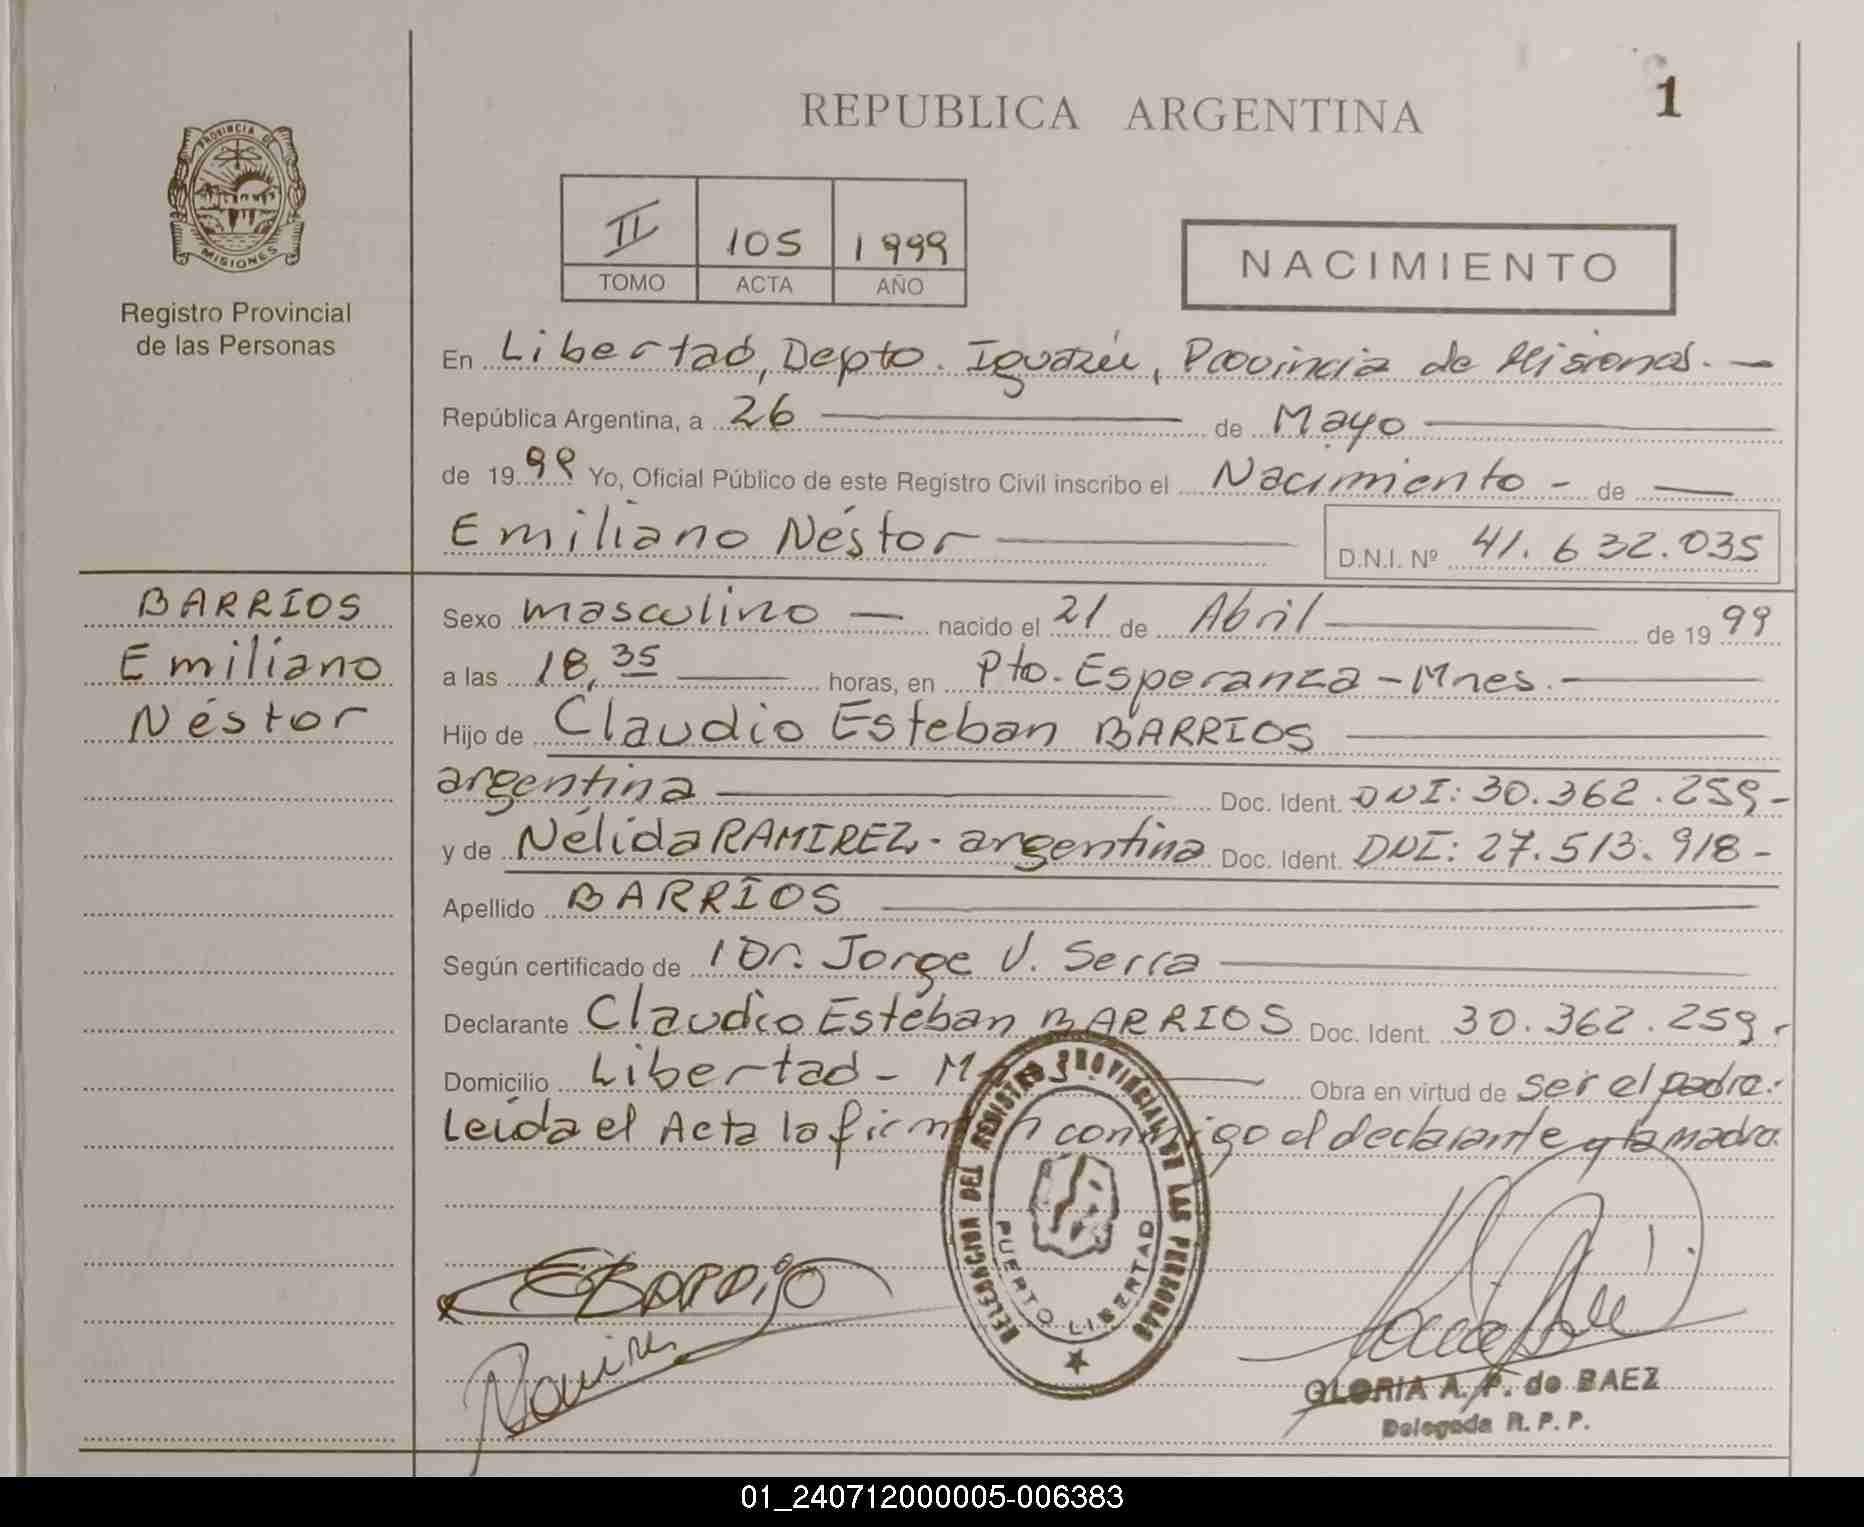 REPUBLICA ARGENTINA
1
PROVINCIA DE
MISIONES
Registro Provincial
de las Personas
II 105 1999
TOMO ACTA AÑO
NACIMIENTO
En Libertad, Depto. Iguazú, Provincia de Misiones. —
República Argentina, a 26 — de Mayo —
de 1999 Yo, Oficial Público de este Registro Civil inscribo el Nacimiento - de —
Emiliano Néstor — D.N.I. Nº 41.632.035
BARRIOS
Emiliano
Néstor
Sexo masculino — nacido el 21 de Abril — de 1999
a las 18,35 — horas, en Pto. Esperanza - Mnes. —
Hijo de Claudio Esteban BARRIOS —
argentina — Doc. Ident. DNI: 30.362.259-
y de Nélida RAMIREZ - argentina Doc. Ident. DNI: 27.513.918-
Apellido BARRIOS —
Según certificado de / Dr. Jorge V. Serra —
Declarante Claudio Esteban BARRIOS Doc. Ident. 30.362.259-
Domicilio Libertad - Mnes. — Obra en virtud de ser el padre.
Leída el Acta la firman conmigo el declarante y la madre.
DELEGACION DEL REGISTRO PROVINCIAL DE LAS PERSONAS
PUERTO LIBERTAD
Ramirez
GLORIA A. P. de BAEZ
Delegada R. P. P.
01_240712000005-006383